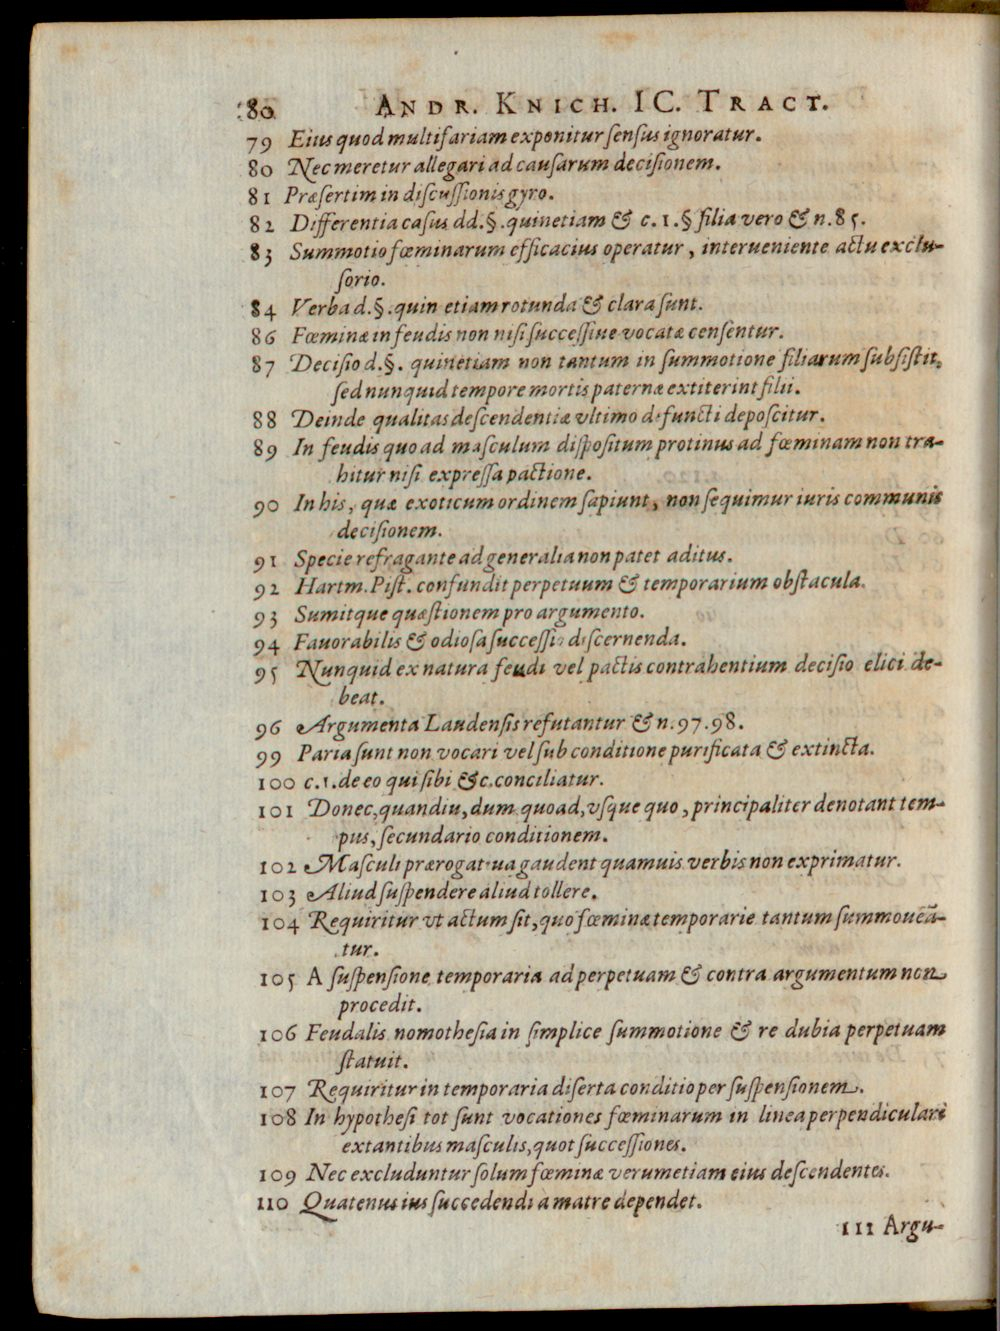 80 ANDR. KNICH. IC. TRACT.
79 Eius quod multifariam exponitur sensus ignoratur.
80 Nec meretur allegari ad causarum decisionem.
81 Præsertim in discussionis gyro.
82 Differentia casus dd.§. quinetiam & c. 1.§ filia vero & n.85.
83 Summotio fœminarum efficacius operatur, interueniente actu exclu-
sorio.
84 Verba d.§. quin etiam rotunda & clara sunt.
86 Fœminæ in feudis non nisi successiue vocatæ censentur.
87 Decisio d.§. quinetiam non tantum in summotione filiarum subsistit,
sed nunquid tempore mortis paternæ extiterint filii.
88 Deinde qualitas descendentiæ vltimo defuncti deposcitur.
89 In feudis quo ad masculum dispositum protinus ad fœminam non tra-
hitur nisi expressa pactione.
90 In his, quæ exoticum ordinem sapiunt, non sequimur iuris communis
decisionem.
91 Specie refragante ad generalia non patet aditus.
92 Hartm. Pist. confundit perpetuum & temporarium obstacula.
93 Sumitque quæstionem pro argumento.
94 Fauorabilis & odiosa successio discernenda.
95 Nunquid ex natura feudi vel pactis contrahentium decisio elici de-
beat.
96 Argumenta Laudensis refutantur & n.97.98.
99 Paria sunt non vocari vel sub conditione purificata & extincta.
100 c.1.de eo qui sibi &c. conciliatur.
101 Donec, quandiu, dum quoad, vsque quo, principaliter denotant tem-
pus, secundario conditionem.
102 Masculi prærogatiua gaudent quamuis verbis non exprimatur.
103 Aliud suspendere aliud tollere.
104 Requiritur vt actum sit, quo fœminæ temporarie tantum summoueã-
tur.
105 A suspensione temporaria ad perpetuam & contra argumentum non
procedit.
106 Feudalis nomothesia in simplice summotione & re dubia perpetuam
statuit.
107 Requiritur in temporaria diserta conditio per suspensionem.
108 In hypothesi tot sunt vocationes fœminarum in linea perpendiculari
extantibus masculis, quot successiones.
109 Nec excluduntur solum fœminæ verumetiam eius descendentes.
110 Quatenus ius succedendi a matre dependet.
111 Argu-